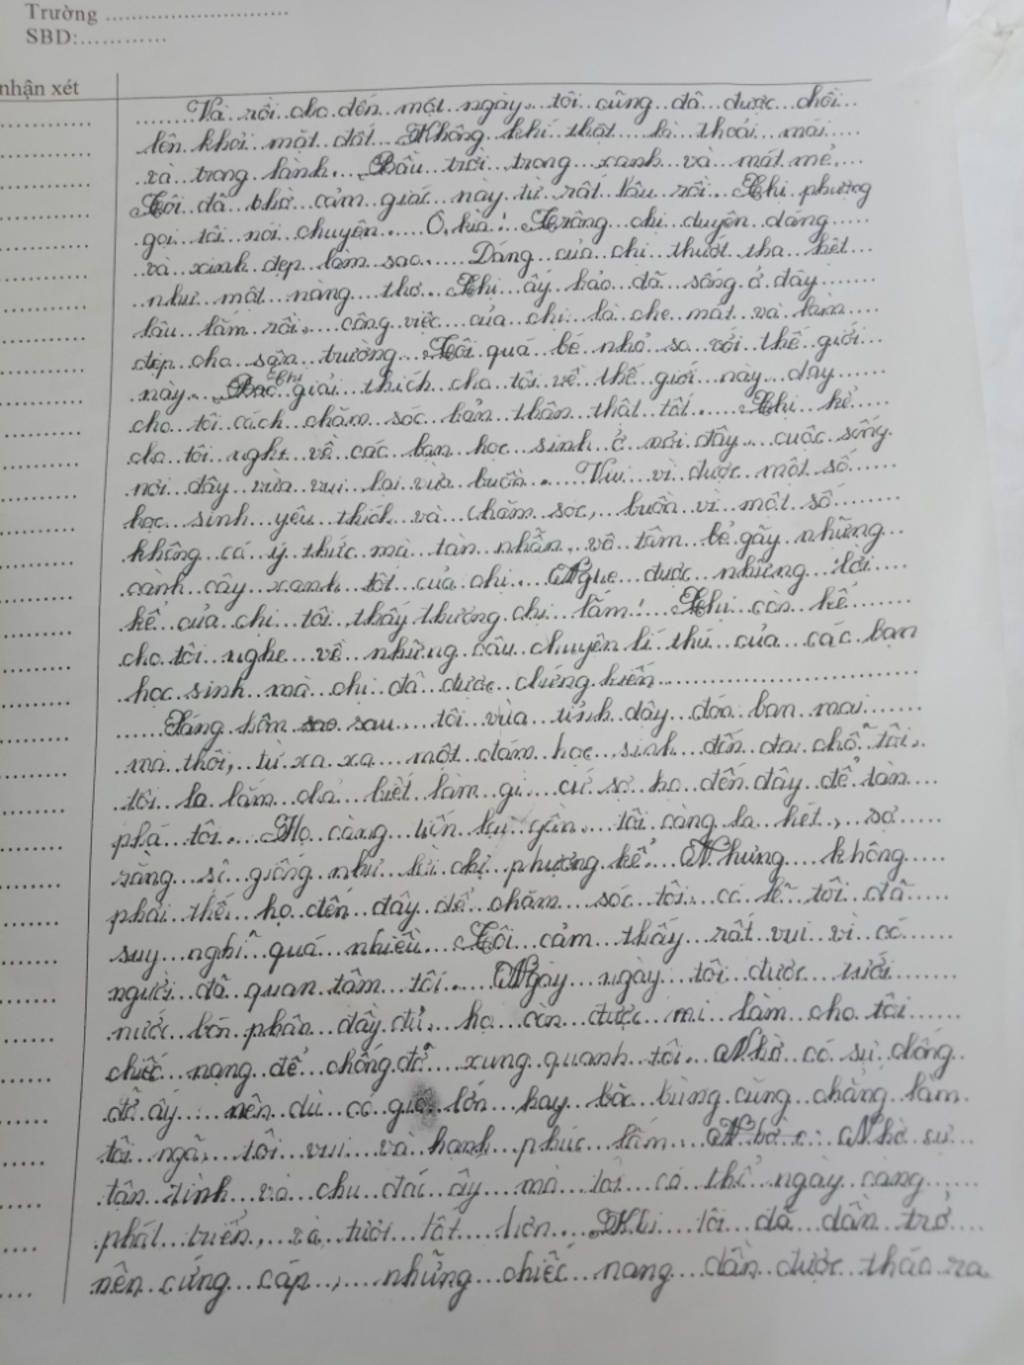 Trường ..............................
SBD:............
nhận xét
Và rồi cho đến một ngày.. tôi cũng đã được chồi
lên khỏi mặt đất. Không khí thật là thoải mái
và trong lành. Bầu trời trong xanh và mát mẻ.
Tôi đã chờ cảm giác này từ rất lâu rồi. Chị phượng
gọi tôi nói chuyện. Ô kìa! Trông chị duyên dáng
và xinh đẹp làm sao. Dáng của chị thướt tha hệt
như một nàng thơ. Chị ấy bảo đã sống ở đây
lâu lắm rồi. công việc của chị là che mát và làm
đẹp cho sân trường. Tôi quá bé nhỏ so với thế giới
này. Chị giải thích cho tôi về thế giới này dạy
cho tôi cách chăm sóc bản thân thật tốt. Chị kể
cho tôi nghe về các bạn học sinh ở nơi đây. cuộc sống
nơi đây vừa vui lại vừa buồn. Vui vì được một số
học sinh yêu thích và chăm sóc, buồn vì một số
không có ý thức mà tàn nhẫn, vô tâm bẻ gãy những
cành cây xanh tốt của chị. Nghe được những lời
kể của chị tôi thấy thương chị lắm! Chị còn kể
cho tôi nghe về những câu chuyện lí thú của các bạn
học sinh mà chị đã được chứng kiến
Sáng hôm sao sau tôi vừa tỉnh dậy đón ban mai
mà thôi, từ xa xa một đám học sinh đến chỗ tôi,
tôi lo lắm chả biết làm gì cứ sợ họ đến đây để tàn
phá tôi. Họ càng tiến lại gần tôi càng la hét, sợ
rằng sẽ giống như lời chị phượng kể. Nhưng không
phải thế, họ đến đây để chăm sóc tôi, có lẽ tôi đã
suy nghĩ quá nhiều. Tôi cảm thấy rất vui vì có
người đã quan tâm tôi. Ngày ngày tôi được tưới
nước bón phân đầy đủ, họ còn làm cho tôi
chiếc nạng để chống đỡ xung quanh tôi. Nhờ có sự chống
đỡ ấy nên dù có gió lớn hay bão bùng cũng chẳng làm
tôi ngã, tôi vui và hạnh phúc lắm. Nhờ Nhờ sự
tận tình và chu đáo ấy mà tôi có thể ngày càng
phát triển, và tươi tốt hơn. Khi tôi đã dần trở
nên cứng cáp, những chiếc nạng dần được tháo ra